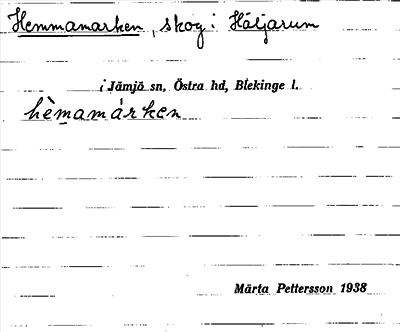 Hemmamarken, skog i Håljarum
i Jämjö sn, Östra hd, Blekinge l.
hèmamárken
Märta Pettersson 1938